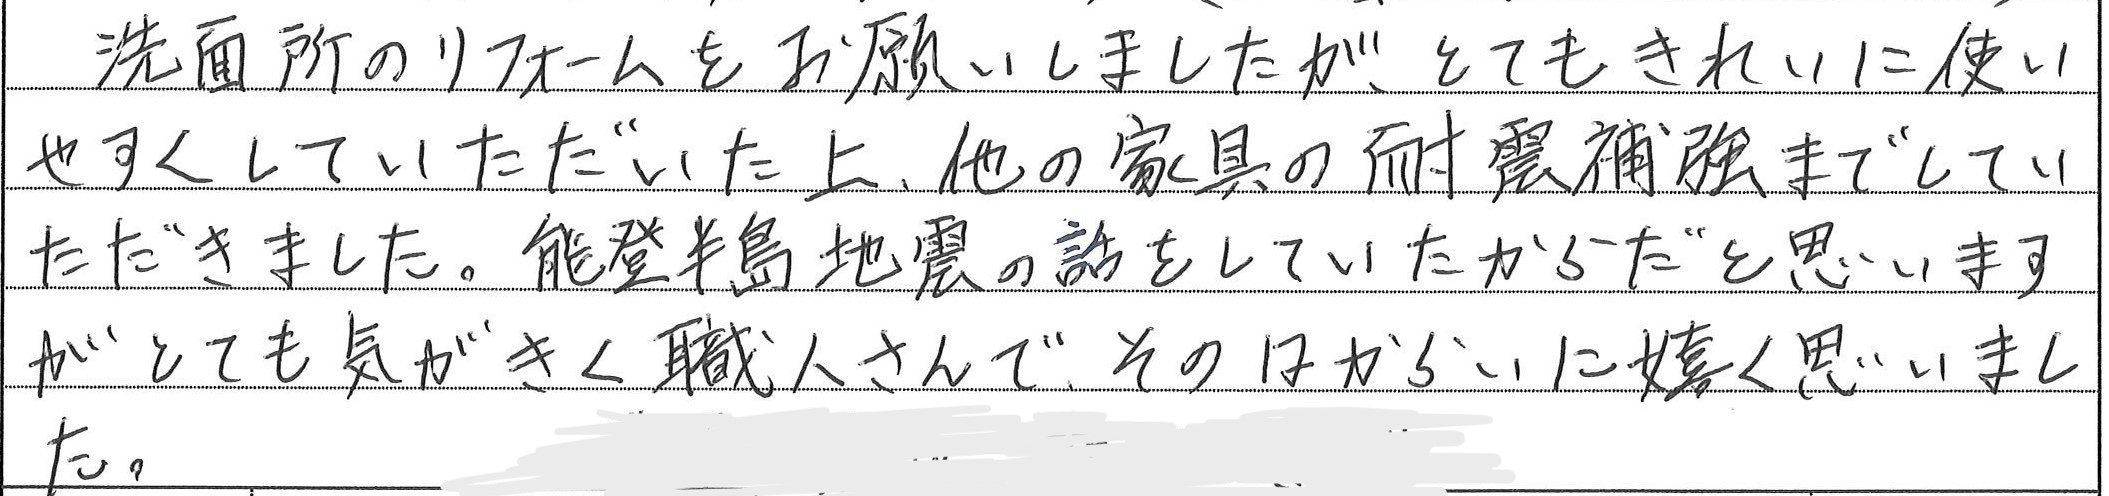 洗面所のリフォームをお願いしましたが、とてもきれいに使い
やすくしていただいた上、他の家具の耐震補強までしてい
ただきました。能登半島地震の話をしていたからだと思います
がとても気がきく職人さんで、そのはからいに嬉く思いまし
た。